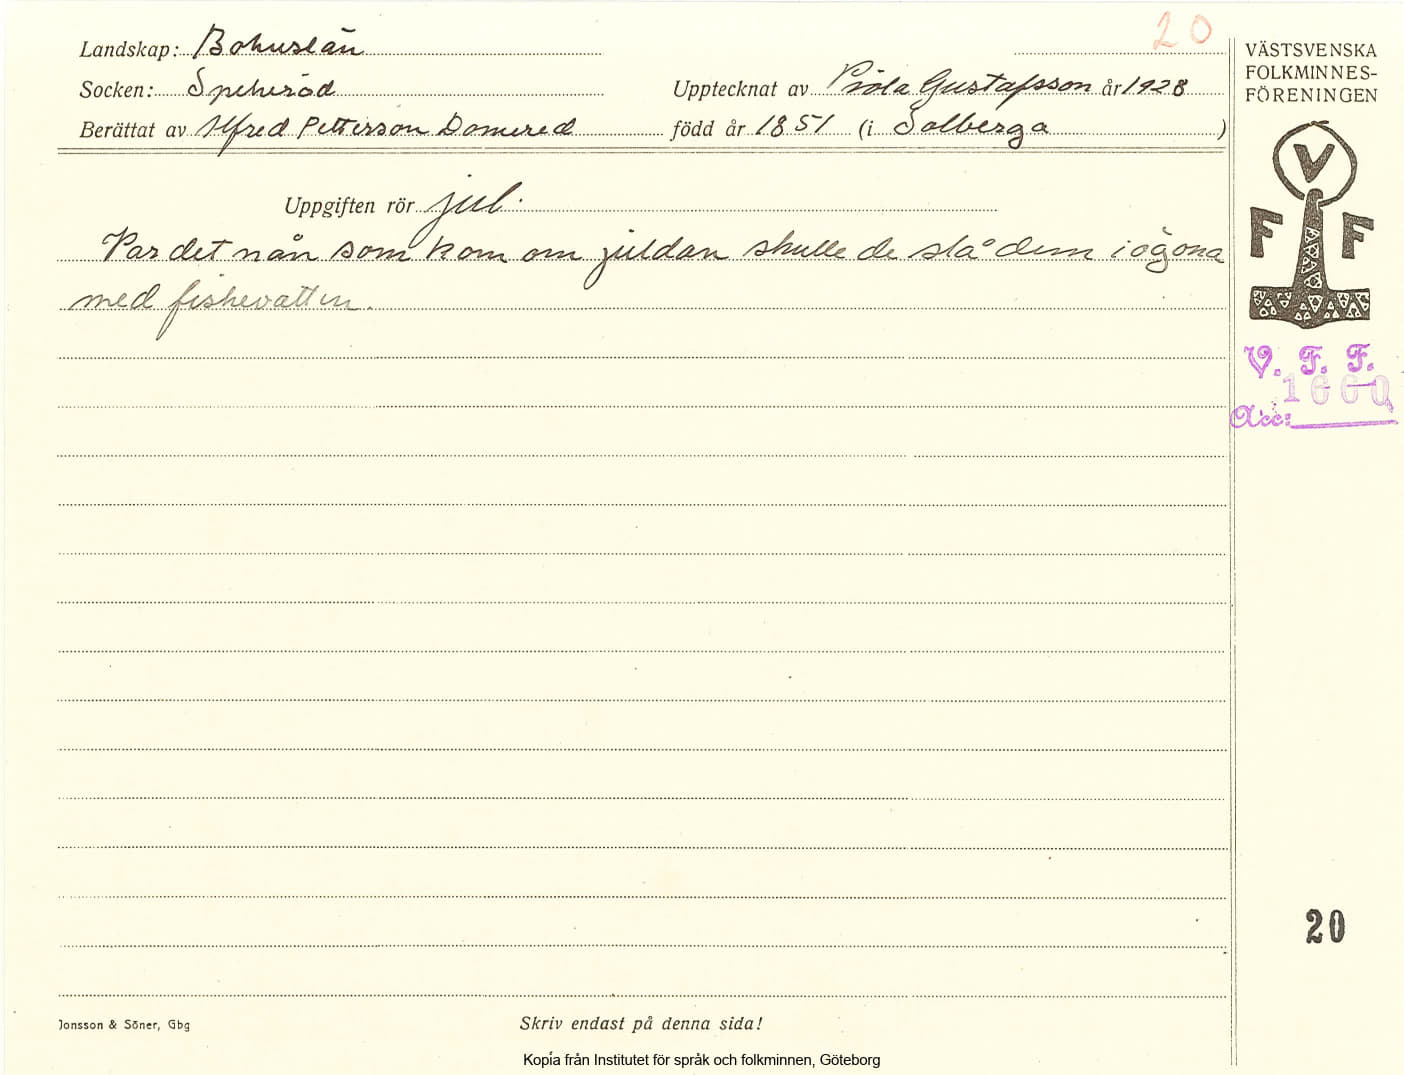 20
Landskap: Bohuslän
Socken: Spekeröd
Upptecknat av Viola Gustafsson år 1928
Berättat av Alfred Petterson Domered född år 1851 (i Solberga)
VÄSTSVENSKA
FOLKMINNES-
FÖRENINGEN
V
F F
Uppgiften rör jul.
Var det nån som kom om juldan skulle de slå dem i ögona
med fiskevatten.
V. F. F.
1660
Acc:
20
Jonsson & Söner, Gbg
Skriv endast på denna sida!
Kopia från Institutet för språk och folkminnen, Göteborg